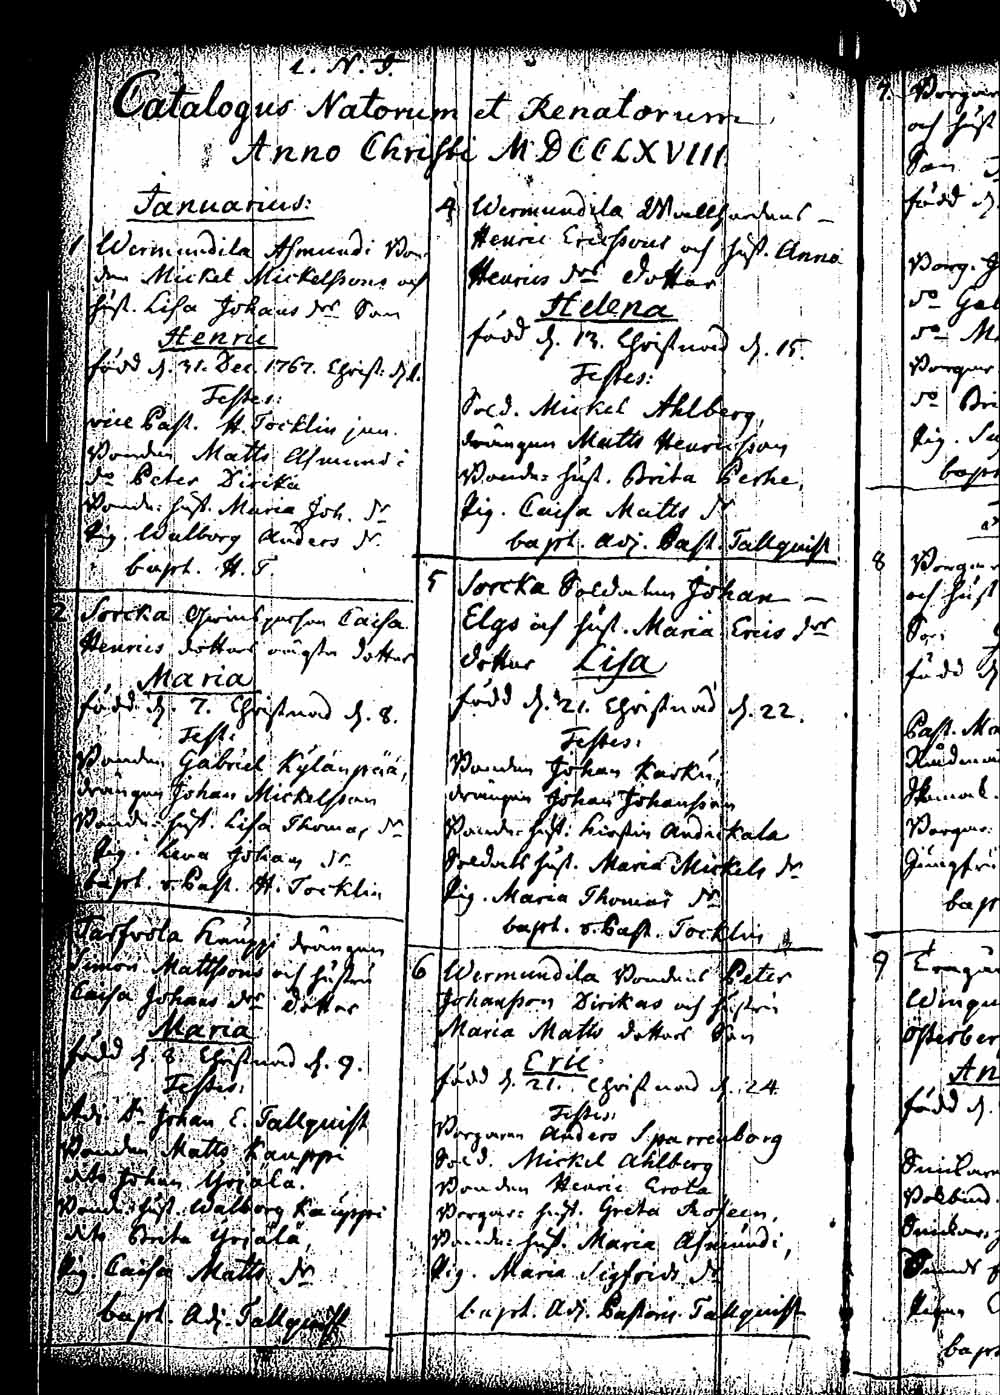 I. N. J.
Catalogus Natorum et Renatorum
Anno Christi MDCCLXVIII
Januarius:
1 Wermundila Asmundi Bon-
den Mickel Mickelssons och
hust. Lisa Johans dr Son
Henric
född d. 31. Dec. 1767. Christ. d. 1.
Testes:
vice Past. H. Tocklin jun.
Bonden Matts Asmundi
do Peter Dirika
Bonde: hust. Maria Joh. dr
Pig. Walborg Anders dr
bapt. H. T.
2 Sorcka Caisa
Henrics dotters oägta dotter
Maria
född d. 7. Christnad d. 8.
Test:
Bonden Gabriel Kylänpää,
drängen Johan Mickelsson
Bonde: hust. Lisa Thomas dr
Pig. Lena Johan dr
bapt. v. Past. H. Tocklin
Tarfvola Kauppi drängen
Simon Mattssons och hustru
Caisa Johans dr dotter
Maria
född d. 8. Christnad d. 9.
Testes:
Adj. Dn Johan E. Tallquist
Bonden Matts Kauppi
dito Johan Yrjälä.
Bonde: hust. Walborg Kauppi
dito Brita Yrjälä
Pig Caisa Matts dr
bapt. Adj. Tallquist
4 Wermundila
Henric Ericssons och hust. Anna
Henrics dr dotter
Helena
född d. 13. Christnad d. 15.
Testes:
Sold. Mickel Ahlberg,
drängen Matts Henricsson
Bonde: hust. Brita Perhe,
Pig. Caisa Matts dr
bapt. Adj. Past. Tallquist
5 Sorcka Soldaten Johan
Elgs och hust. Maria Erics dr
dotter Lisa
född d. 21. Christnad d. 22.
Testes:
Bonden Johan Karku,
drängen Johan Johansson
Bonde: hust: Kirstin Andickala
Soldats hust. Maria Mickels dr
Pig. Maria Thomas dr
bapt. v. Past. Tocklin
6 Wermundila Bondens Peter
Johansson Dirikas och hustru
Maria Matts dotters Son
Eric
född d. 21. Christnad d. 24.
Testes:
Borgaren Anders Sparrenborg
Sold. Mickel Ahlberg
Bonden Henric Erola
Borgar: hust. Greta Roseen,
Bonde: hust. Maria Asmundi,
Pig. Maria Sigfrids dr
bapt. Adj. Pastoris Tallquist
7. Borgar
och hust
Son
född d.
Borg. J
do Gab
do M
Borgar
do Bri
Pig.
bapt
8 Borgar
och hust
Son
född d
Past. Ma
Borgar:
Jungfru
bapt
9
Österber
An
född d.
Pigan
bapt